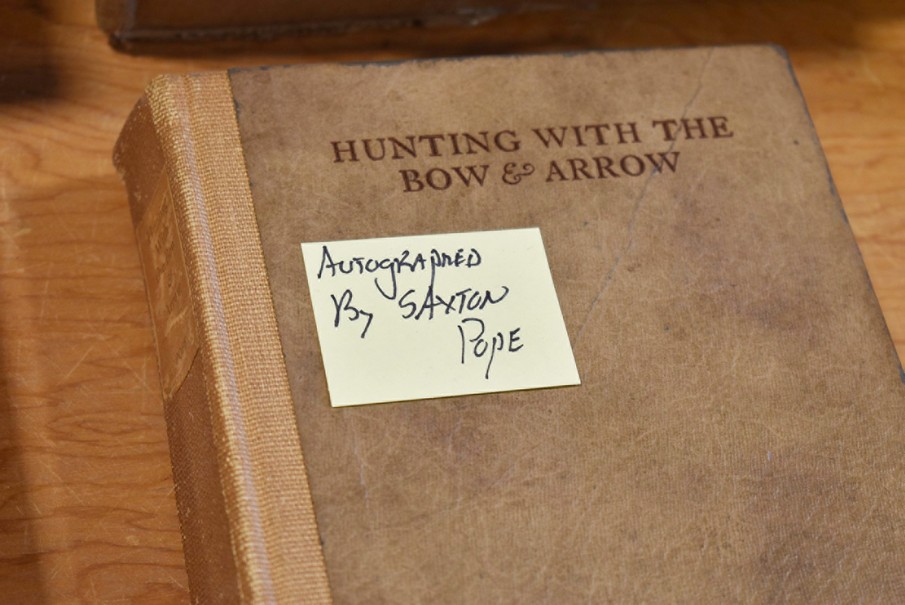 HUNTING WITH THE
BOW & ARROW
AUTOGRAPHED
By SAXTON
POPE